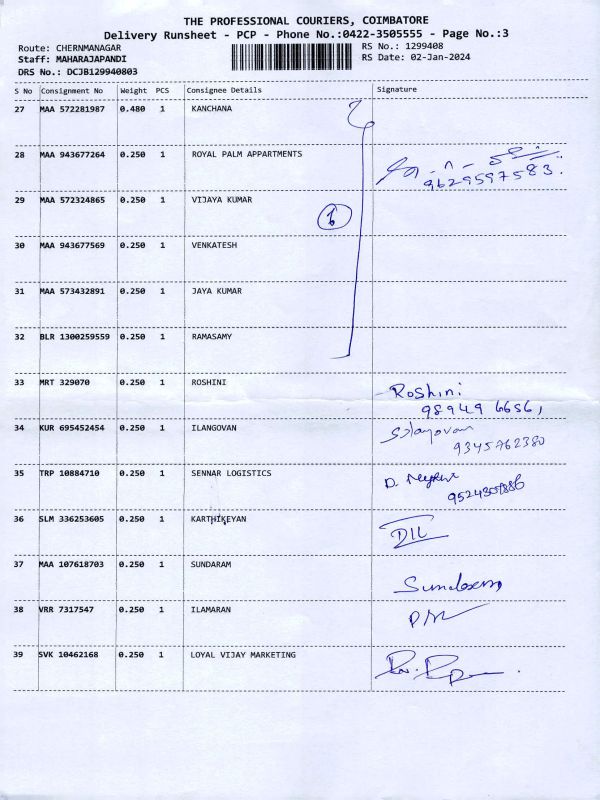 THE PROFESSIONAL COURIERS, COIMBATORE
Delivery Runsheet - PCP - Phone No.:0422-3505555 - Page No.:3
Route: CHERNMANAGAR RS No.: 1299408
Staff: MAHARAJAPANDI RS Date: 02-Jan-2024
DRS No.: DCJB129940803
S No Consignment No Weight PCS Consignee Details Signature
27 MAA 572281987 0.480 1 KANCHANA
28 MAA 943677264 0.250 1 ROYAL PALM APPARTMENTS
9629597583
29 MAA 572324865 0.250 1 VIJAYA KUMAR
6
30 MAA 943677569 0.250 1 VENKATESH
31 MAA 573432891 0.250 1 JAYA KUMAR
32 BLR 1300259559 0.250 1 RAMASAMY
33 MRT 329070 0.250 1 ROSHINI Roshini
98949 66561
34 KUR 695452454 0.250 1 ILANGOVAN
9345762380
35 TRP 10884710 0.250 1 SENNAR LOGISTICS
36 SLM 336253605 0.250 1 KARTHIKEYAN
37 MAA 107618703 0.250 1 SUNDARAM Sundaram
38 VRR 7317547 0.250 1 ILAMARAN
39 SVK 10462168 0.250 1 LOYAL VIJAY MARKETING